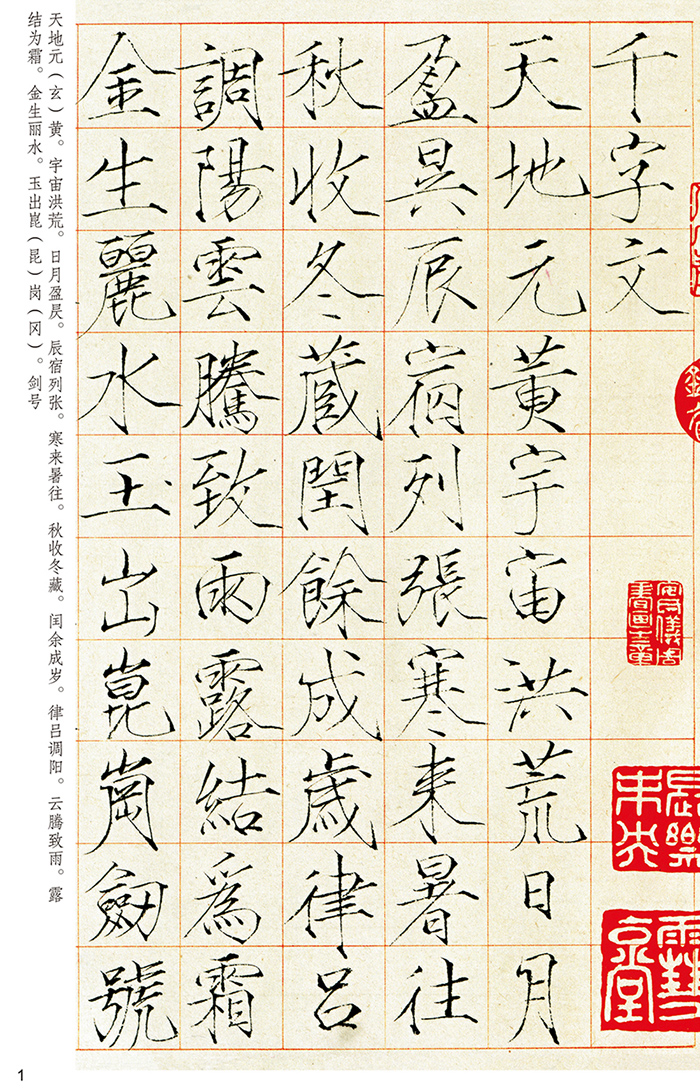 千字文
天地元黃宇宙洪荒日月
盈昃辰宿列張寒来暑往
秋收冬蔵閏餘成歲律呂
調陽雲騰致雨露結為霜
金生麗水玉出崑崗劒號
天地元（玄）黄。宇宙洪荒。日月盈昃。辰宿列张。寒来暑往。秋收冬藏。闰余成岁。律吕调阳。云腾致雨。露
结为霜。金生丽水。玉出崑（昆）岗（冈）。剑号
1